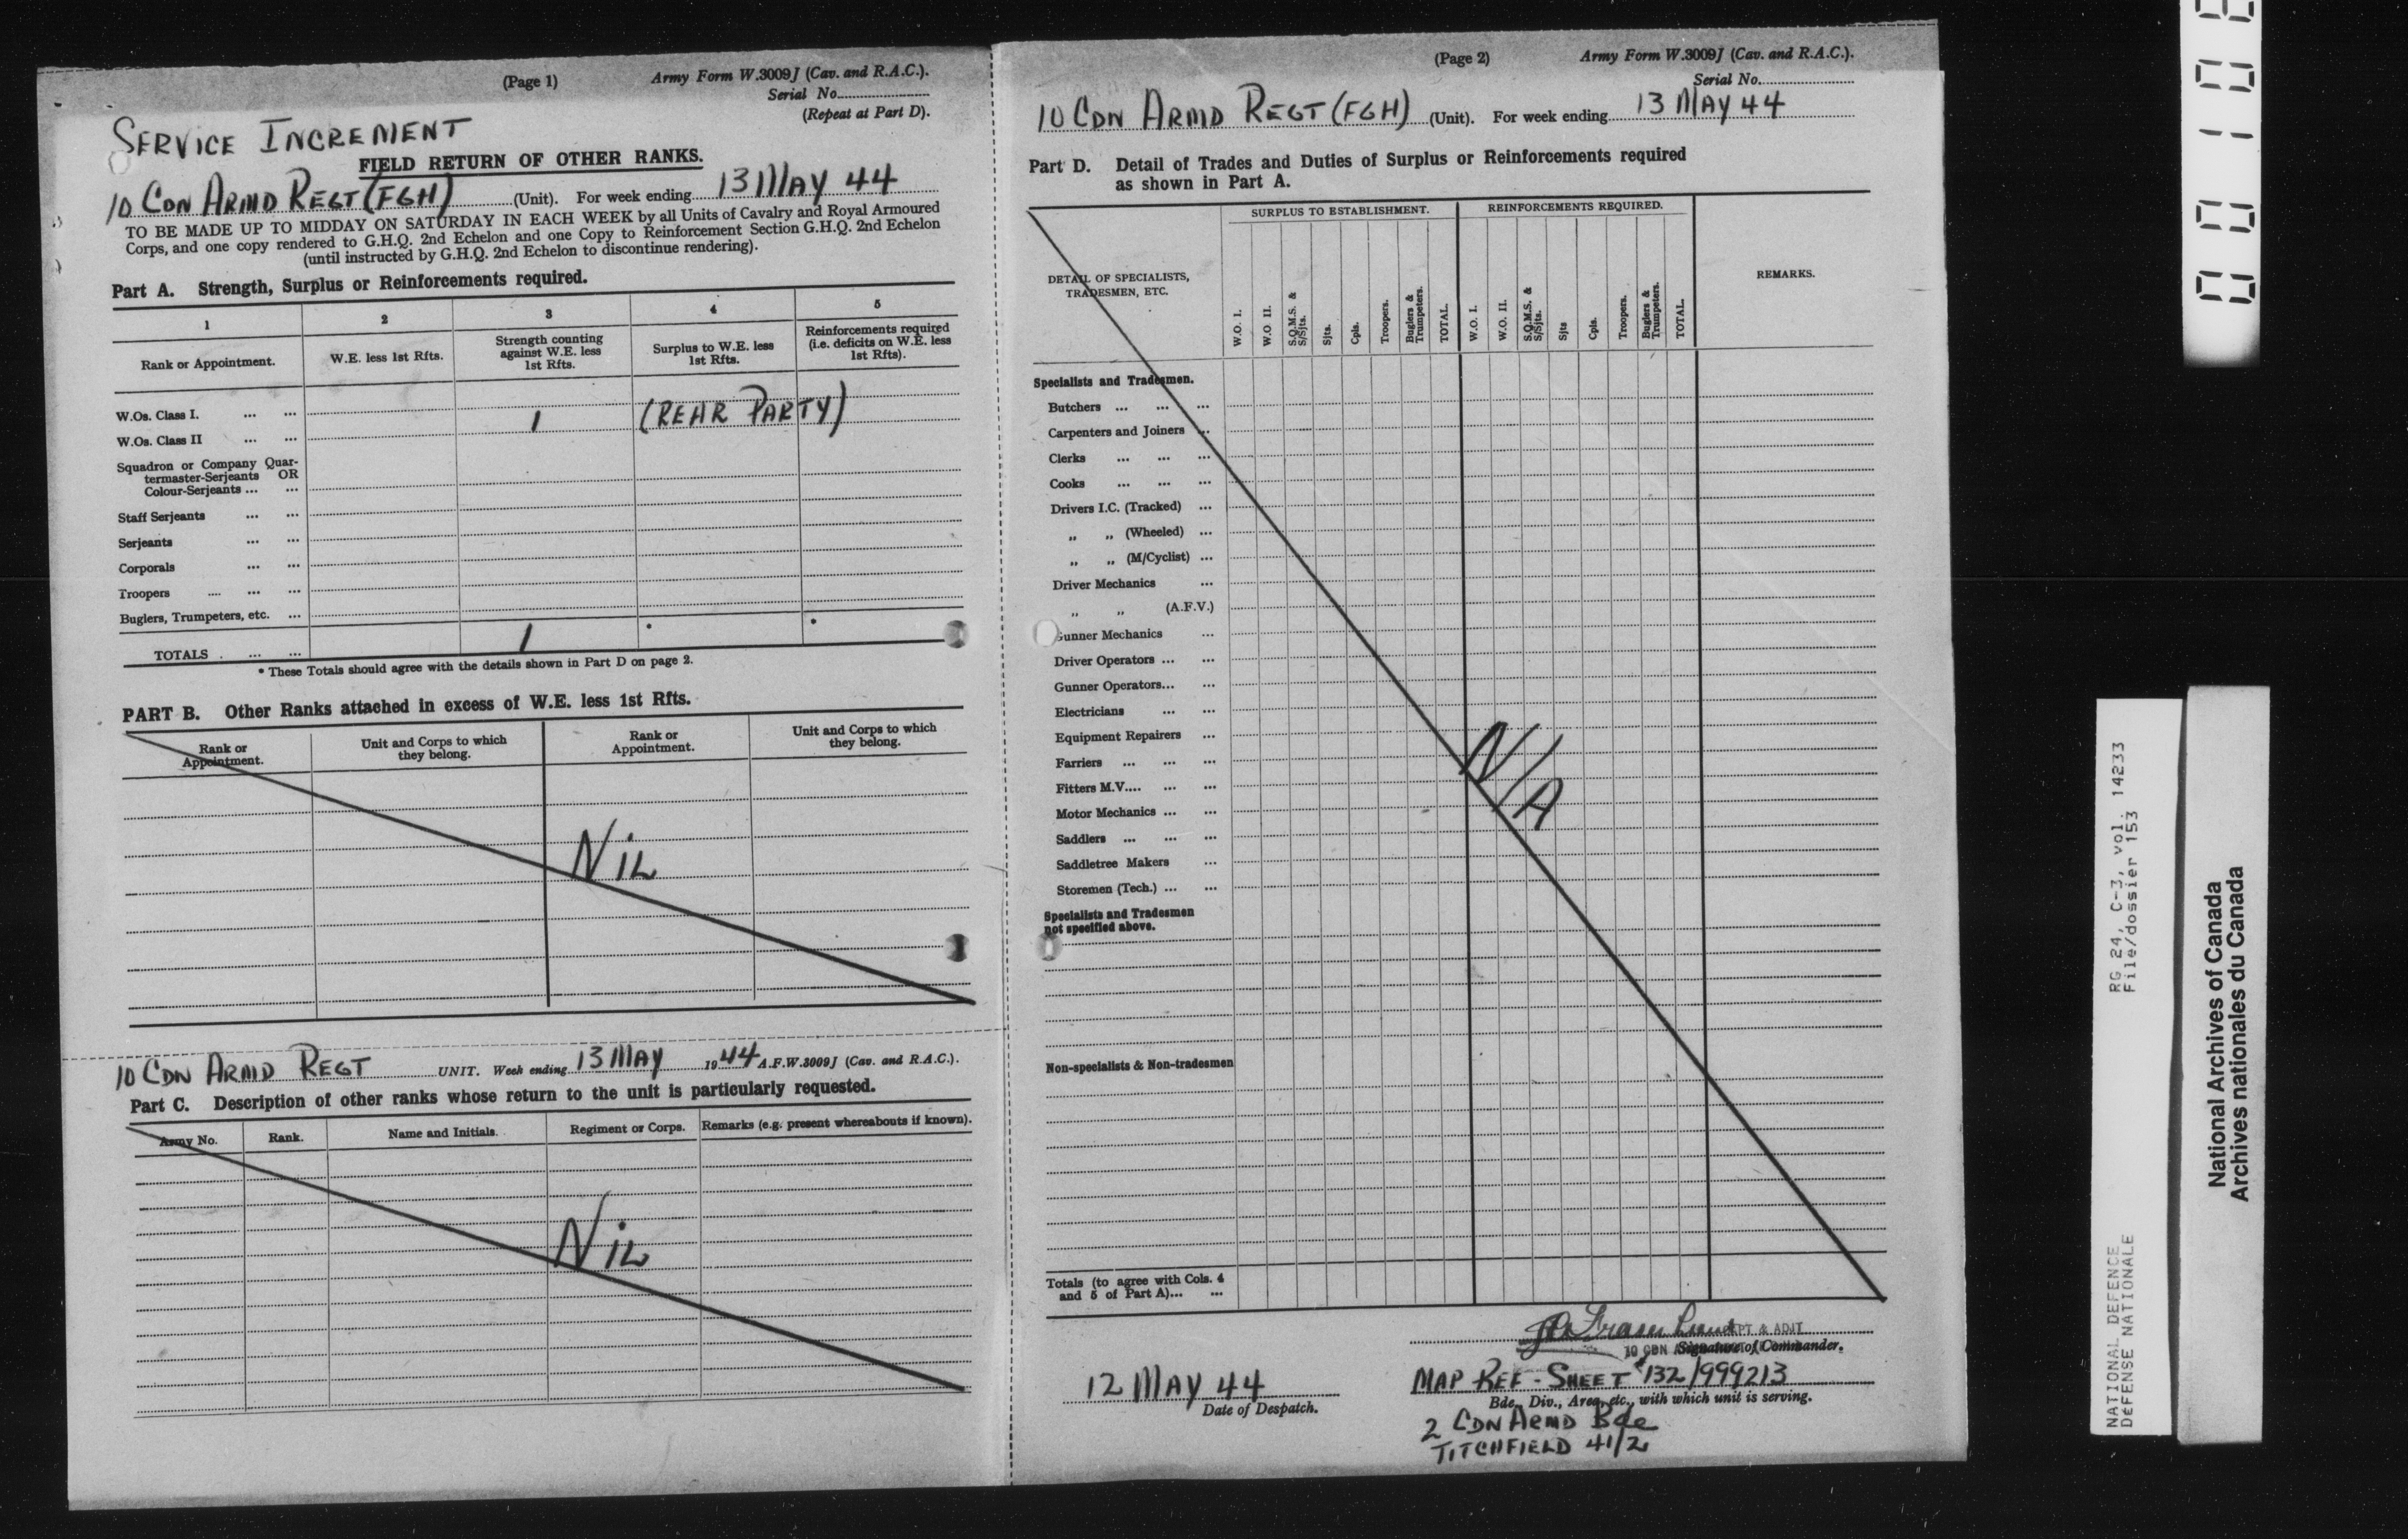 (Page 1)
Army Form W.3009J (Cav. and R.A.C.).
Serial No.
(Repeat at Part D).
SERVICE INCREMENT
FIELD RETURN OF OTHER RANKS.
10 CDN ARMD REGT (FGH) (Unit). For week ending 13 MAY 44
TO BE MADE UP TO MIDDAY ON SATURDAY IN EACH WEEK by all Units of Cavalry and Royal Armoured
Corps, and one copy rendered to G.H.Q. 2nd Echelon and one Copy to Reinforcement Section G.H.Q. 2nd Echelon
(until instructed by G.H.Q. 2nd Echelon to discontinue rendering).
Part A. Strength, Surplus or Reinforcements required.
1 2 3 4 5
Rank or Appointment.
W.E. less 1st Rfts.
Strength counting
against W.E. less
1st Rfts.
Surplus to W.E. less
1st Rfts.
Reinforcements required
(i.e. deficits on W.E. less
1st Rfts).
W.Os. Class I. ... ... 1 (REAR PARTY)
W.Os. Class II ... ...
Squadron or Company Quar-
termaster-Serjeants OR
Colour-Serjeants ... ...
Staff Serjeants ... ...
Serjeants ... ...
Corporals ... ...
Troopers .... ... ...
Buglers, Trumpeters, etc. ...
TOTALS . ... ... 1 * *
* These Totals should agree with the details shown in Part D on page 2.
PART B. Other Ranks attached in excess of W.E. less 1st Rfts.
Rank or
Appointment.
Unit and Corps to which
they belong.
Rank or
Appointment.
Unit and Corps to which
they belong.
NIL
10 CDN ARMD REGT UNIT. Week ending 13 MAY 1944 A.F.W.3009J (Cav. and R.A.C.).
Part C. Description of other ranks whose return to the unit is particularly requested.
Army No. Rank. Name and Initials. Regiment or Corps. Remarks (e.g. present whereabouts if known).
NIL
(Page 2)
Army Form W.3009J (Cav. and R.A.C.).
Serial No.
10 CDN ARMD REGT (FGH) (Unit). For week ending 13 MAY 44
Part D. Detail of Trades and Duties of Surplus or Reinforcements required
as shown in Part A.
SURPLUS TO ESTABLISHMENT. REINFORCEMENTS REQUIRED.
DETAIL OF SPECIALISTS,
TRADESMEN, ETC.
W.O. I.
W.O II.
S.Q.M.S. &
S/Sjts.
Sjts.
Cpls.
Troopers.
Buglers &
Trumpeters.
TOTAL.
W.O. I.
W.O. II.
S.Q.M.S. &
S/Sjts.
Sjts
Cpls.
Troopers.
Buglers &
Trumpeters.
TOTAL.
REMARKS.
Specialists and Tradesmen.
Butchers ... ... ...
Carpenters and Joiners ...
Clerks ... ... ...
Cooks ... ... ...
Drivers I.C. (Tracked) ...
„ „ (Wheeled) ...
„ „ (M/Cyclist) ...
Driver Mechanics ...
„ „ (A.F.V.)
Gunner Mechanics ...
Driver Operators ... ...
Gunner Operators... ...
Electricians ... ...
Equipment Repairers ...
Farriers ... ... ...
Fitters M.V.... ... ...
Motor Mechanics ... ...
Saddlers ... ... ...
Saddletree Makers ...
Storemen (Tech.) ... ...
N/A
Specialists and Tradesmen
not specified above.
Non-specialists & Non-tradesmen
Totals (to agree with Cols. 4
and 5 of Part A)... ...
CAPT & ADJT
10 CDN
Signature of Commander.
12 MAY 44
Date of Despatch.
MAP REF - SHEET 132/999213
Bde., Div., Area, etc., with which unit is serving.
2 CDN ARMD Bde
TITCHFIELD 41/2
RG 24, C-3, vol. 14233
File/dossier 153
NATIONAL DEFENCE
DÉFENSE NATIONALE
National Archives of Canada
Archives nationales du Canada